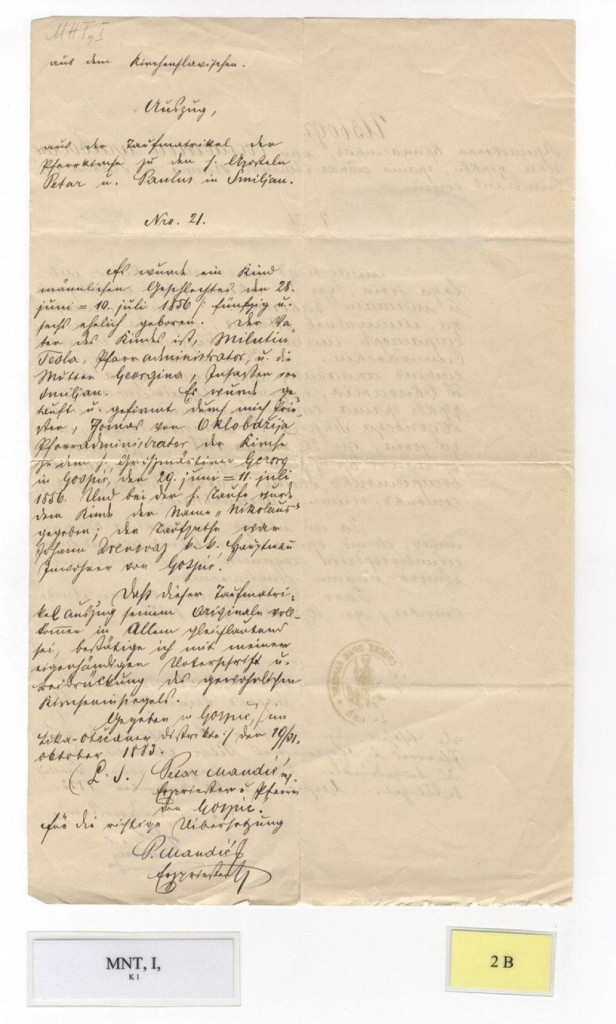 MNT, I
aus dem Kirchenslavischen.
Auszug,
aus der Taufmatrikel der
Pfarrkirche zu den h. Aposteln
Petar u. Paulus in Smiljan.
Nro. 21.
Es wurde ein Kind
männlichen Geschlechtes den 28.
juni = 10. juli 1856 /: fünfzig u.
sechs ehelich geboren. Der Va-
ter des Kindes ist, Milutin
Tesla, Pfarradministrator, u. die
Mutter Georgina, Insassen von
Smiljan. Es wurde ge
tauft u. gefirmt durch mich Prie-
ster, Thomas von Oklobdžija
Pfarradministrator der Kirche
zu dem h. Georg
in Gospić, den 29. juni = 11. juli
1856. Und bei der h. Taufe wurde
dem Kinde der Name "Nikolaus"
gegeben; der Taufpathe war
Johann Drenovaz k.k. Hauptman
Inwohner von Gospić.
Daß dieser Taufmatri-
kel Auszug seinem Originale voll-
kommen in Allem gleichlautend
sei, bestätige ich mit meiner
eigenhändigen Unterschrift u.
Beidrückung des gewöhnlichen
Kircheninsiegels.
Gegeben in Gospić, /: im
Lika-Otočaner Distrikte :/ den 19/31.
oktober 1883.
(L. S.) Petar Mandić
Erzpriester u. Pfarrer
von Gospić.
Für die richtige Uibersetzung
P. Mandić
Erzpriester
MNT, I,
K 1
2 B